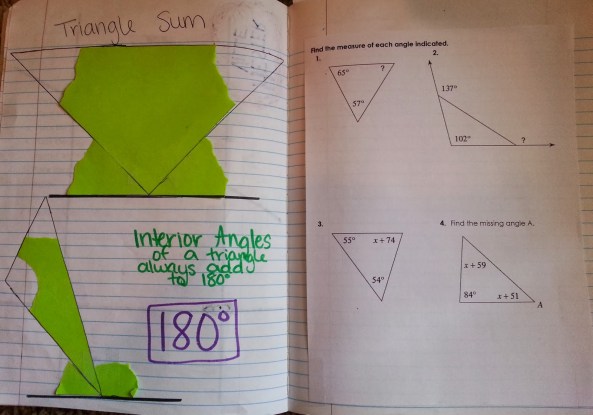 Triangle Sum
Interior Angles
of a triangle
always add
to 180°
180°
Find the measure of each angle indicated.
1.
65°
?
57°
2.
137°
102°
?
3.
55°
x + 74
54°
4. Find the missing angle A.
x + 59
84°
x + 51
A